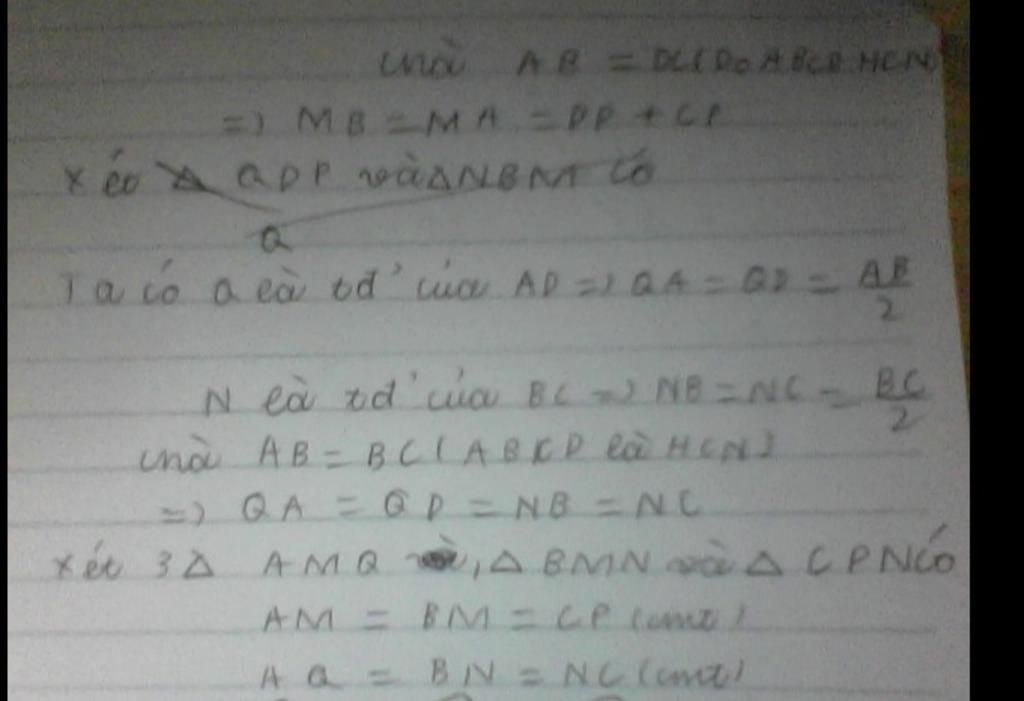 mà AB = DC (Do ABCD HCN)
=> MB = MA = DP + CP
Xét △ QDP và △ NBM có
Q
Ta có Q là tđ' của AD => QA = QD = AB/2
N là tđ' của BC => NB = NC = BC/2
mà AB = BC (ABCD là HCN)
=> QA = QD = NB = NC
Xét 3△ AMQ , △ BMN và △ CPN có
AM = BM = CP (cmt)
AQ = BN = NC (cmt)